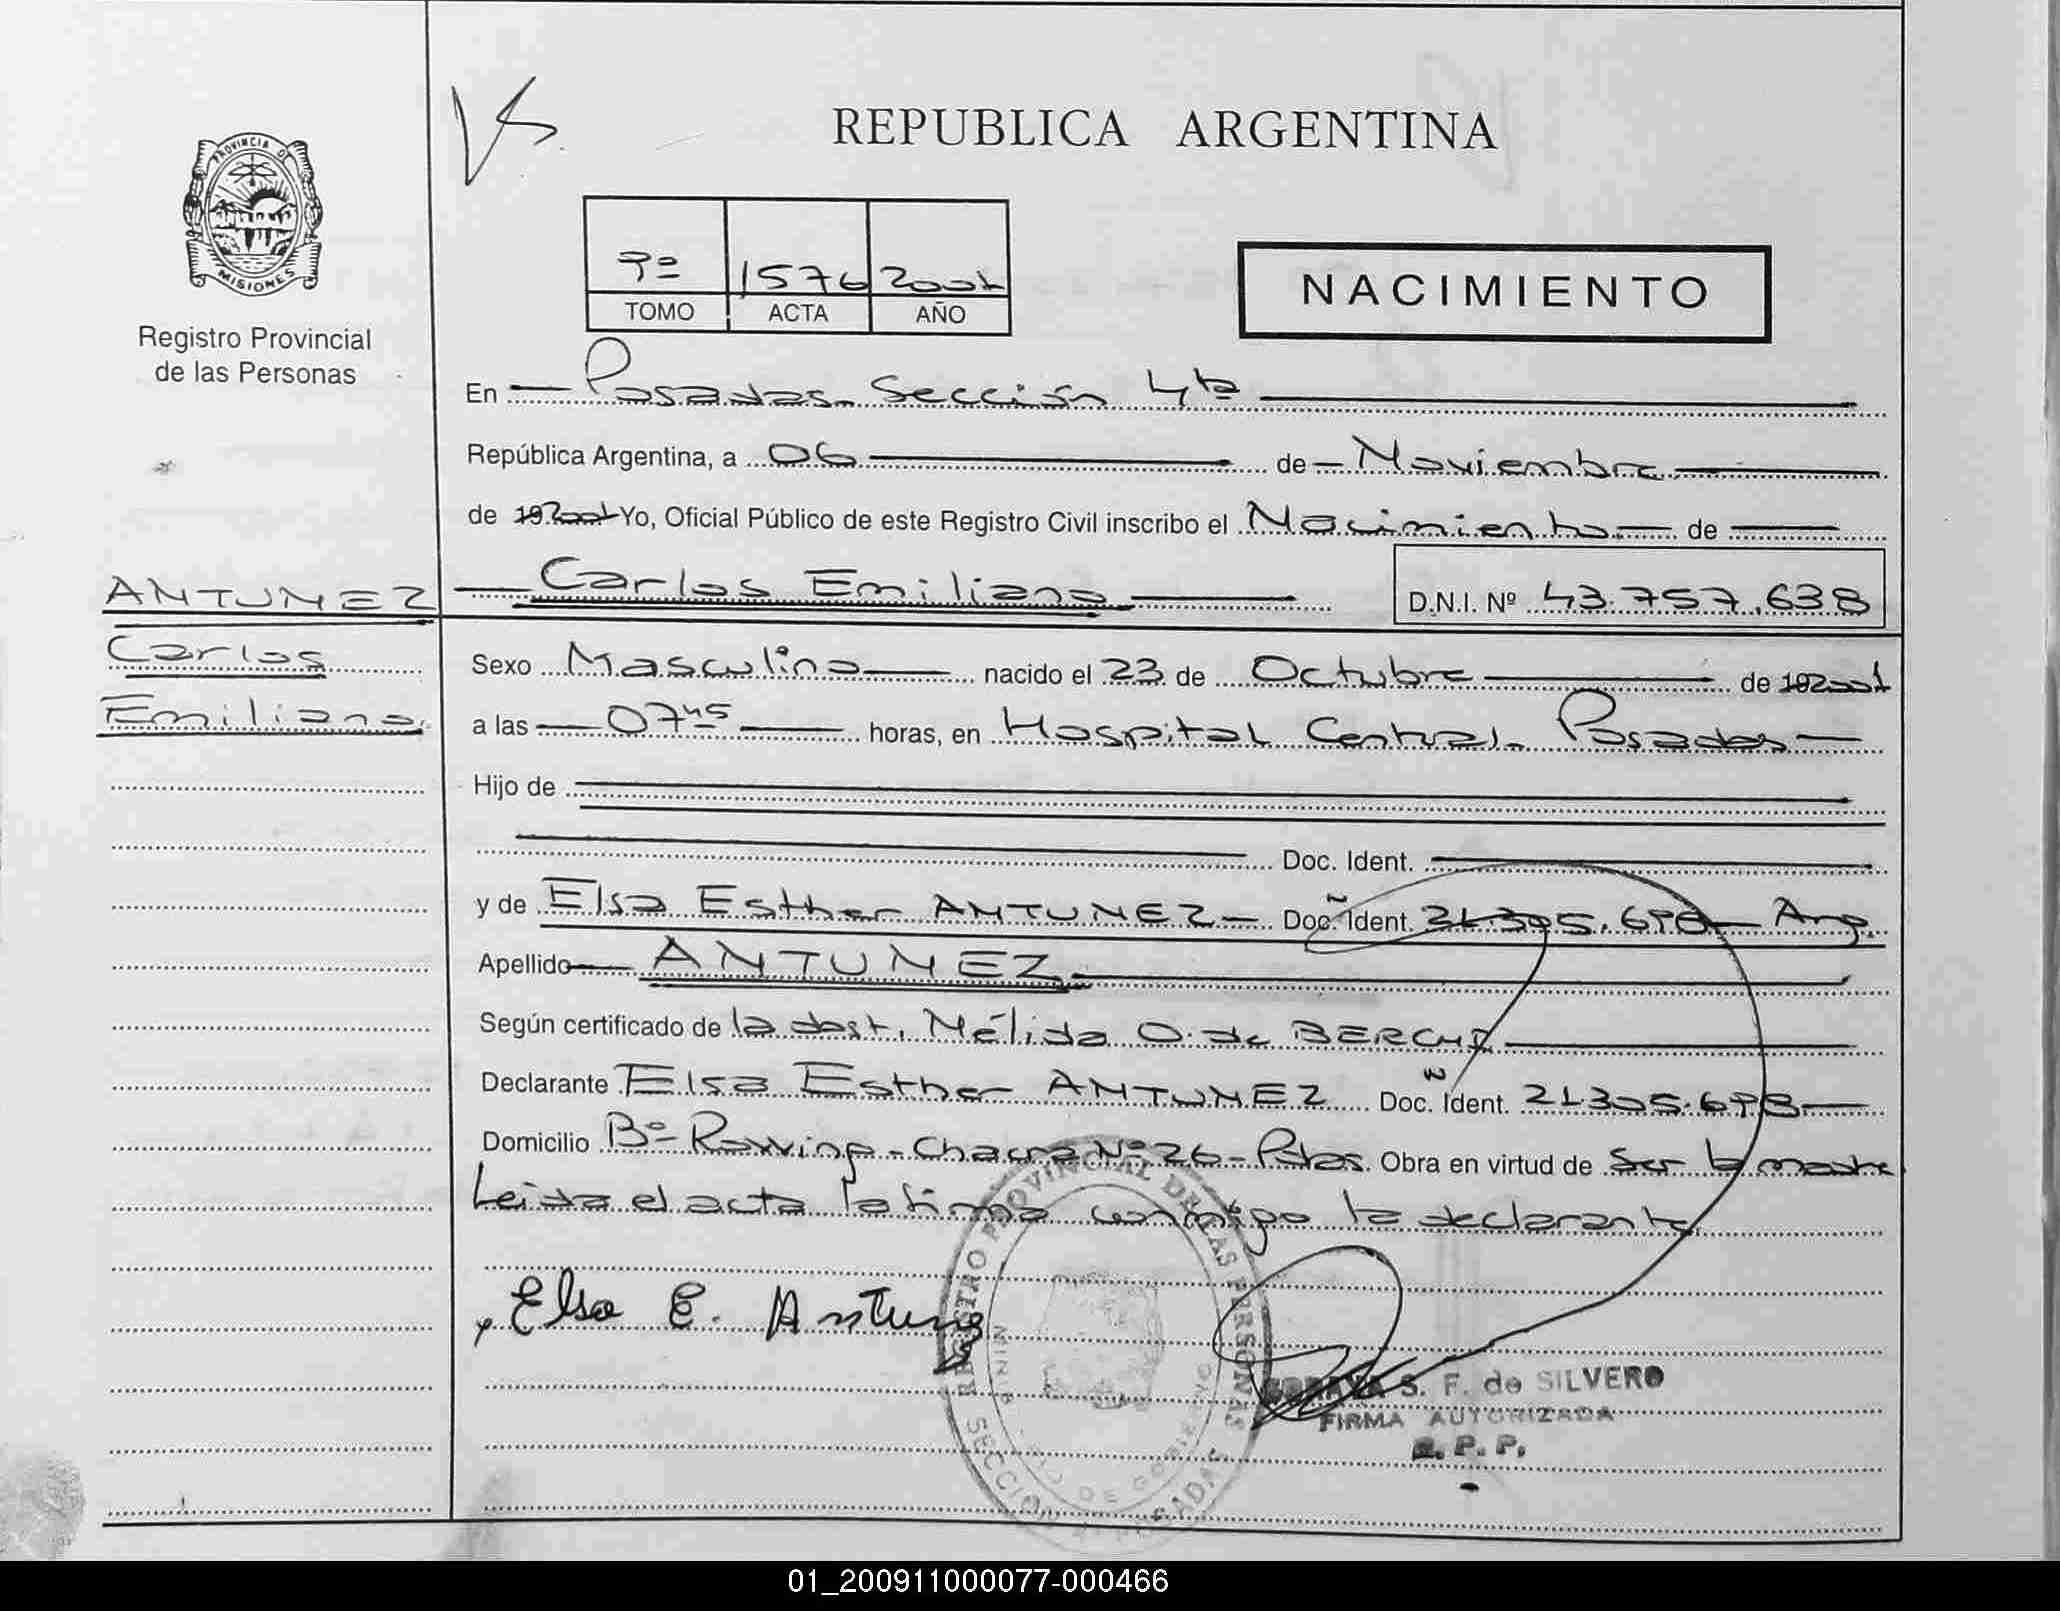 PROVINCIA DE
MISIONES
Registro Provincial
de las Personas
ANTUNEZ
Carlos
Emiliano.
REPUBLICA ARGENTINA
1576 2001
TOMO ACTA AÑO
NACIMIENTO
En Posadas. Sección 4ta
República Argentina, a 06 de Noviembre
de 19 2001 Yo, Oficial Público de este Registro Civil inscribo el Nacimiento de
Carlos Emiliano D.N.I. Nº 43.757.638
Sexo Masculino nacido el 23 de Octubre de 19 2001
a las 07 45 horas, en Hospital Central. Posadas
Hijo de
Doc. Ident.
y de Elsa Esther ANTUNEZ Doc. Ident. 21.305.698 Arg.
Apellido ANTUNEZ
Según certificado de la obst. Nélida O. de
Declarante Elsa Esther ANTUNEZ Doc. Ident. 21.305.698
Domicilio Bº Rowing - Chacra Nº 26 - Pdas. Obra en virtud de ser la madre
Leida el acta la firma conmigo la declarante
Elsa E. Antunez
REGISTRO PROVINCIAL DE LAS PERSONAS
DE GOBIERNO
SECCION POSADAS
SORAYA S. F. de SILVERO
FIRMA AUTORIZADA
R. P. P.
01_200911000077-000466